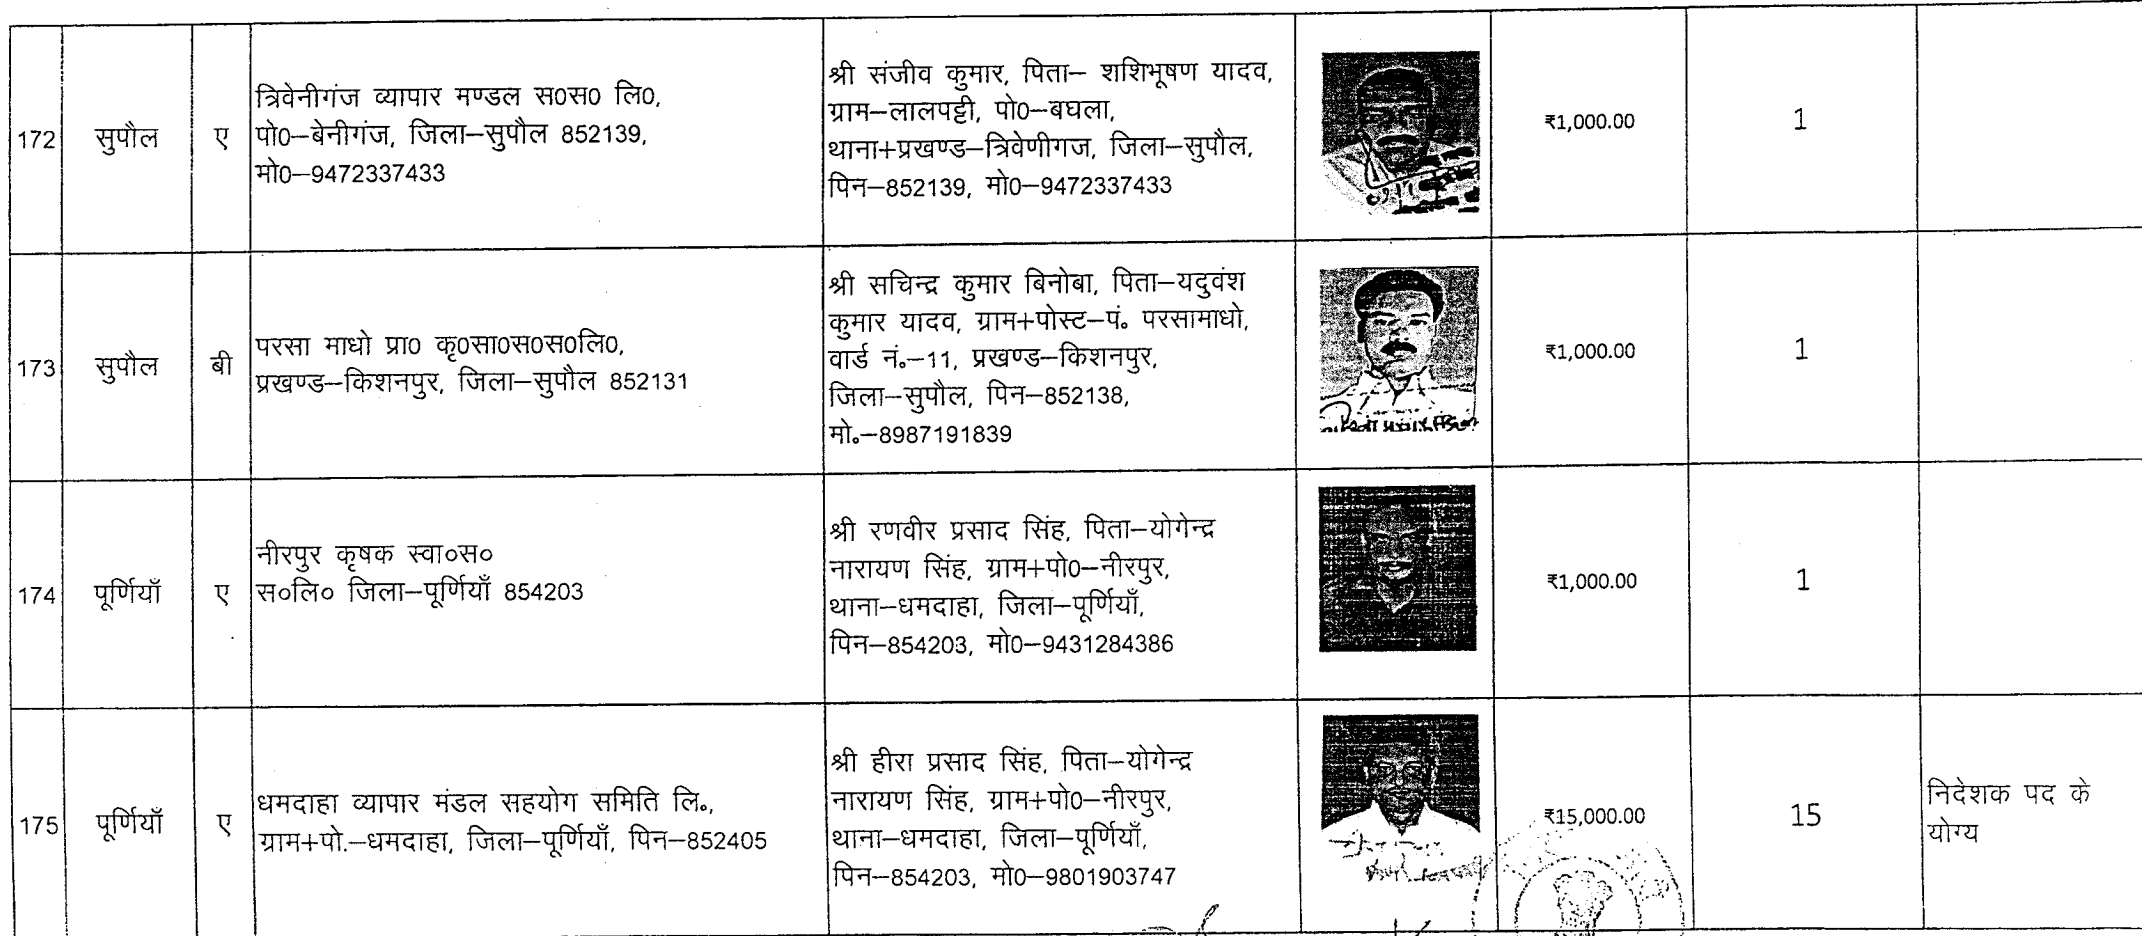 172
सुपौल
ए
त्रिवेनीगंज व्यापार मण्डल स0स0 लि0,
पो0–बेनीगंज, जिला–सुपौल 852139,
मो0–9472337433
श्री संजीव कुमार, पिता– शशिभूषण यादव,
ग्राम–लालपट्टी, पो0–बघला,
थाना+प्रखण्ड–त्रिवेणीगज, जिला–सुपौल,
पिन–852139, मो0–9472337433
₹1,000.00
1
173
सुपौल
बी
परसा माधो प्रा0 कृ0सा0स0स0लि0,
प्रखण्ड–किशनपुर, जिला–सुपौल 852131
श्री सचिन्द्र कुमार बिनोबा, पिता–यदुवंश
कुमार यादव, ग्राम+पोस्ट–पं॰ परसामाधो,
वार्ड नं॰–11, प्रखण्ड–किशनपुर,
जिला–सुपौल, पिन–852138,
मो॰–8987191839
₹1,000.00
1
174
पूर्णियाँ
ए
नीरपुर कृषक स्वा०स०
स०लि० जिला–पूर्णियाँ 854203
श्री रणवीर प्रसाद सिंह, पिता–योगेन्द्र
नारायण सिंह, ग्राम+पो0–नीरपुर,
थाना–धमदाहा, जिला–पूर्णियाँ,
पिन–854203, मो0–9431284386
₹1,000.00
1
175
पूर्णियाँ
ए
धमदाहा व्यापार मंडल सहयोग समिति लि॰,
ग्राम+पो.–धमदाहा, जिला–पूर्णियाँ, पिन–852405
श्री हीरा प्रसाद सिंह, पिता–योगेन्द्र
नारायण सिंह, ग्राम+पो0–नीरपुर,
थाना–धमदाहा, जिला–पूर्णियाँ,
पिन–854203, मो0–9801903747
₹15,000.00
15
निदेशक पद के
योग्य